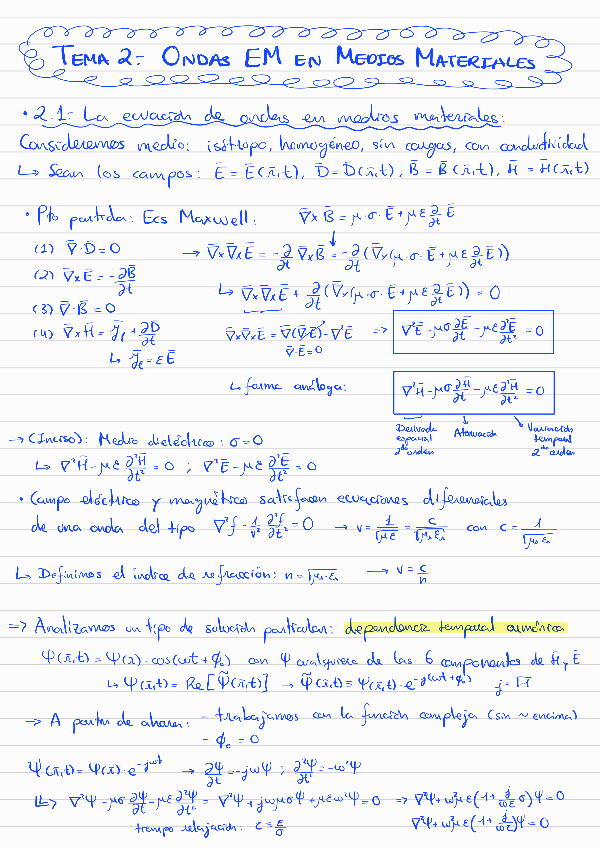 TEMA 2:- ONDAS EM EN MEDIOS MATERIALES
• 2.1:- La ecuación de ondas en medios materiales:
Consideremos medio: isótropo, homogéneo, sin cargas, con conductividad
↳ Sean los campos: Ē = Ē(r̄,t), D̄ = D̄(r̄,t), B̄ = B̄(r̄,t), H̄ = H̄(r̄,t)
• Pto partida: Ecs Maxwell: ∇̄×B̄ = μ·σ·Ē + με ∂/∂t Ē
(1) ∇̄·D̄ = 0 → ∇̄×∇̄×Ē = -∂/∂t ∇̄×B̄ = -∂/∂t (∇̄×(μ·σ·Ē + με ∂/∂t Ē))
(2) ∇̄×Ē = -∂B̄/∂t ↳ ∇̄×∇̄×Ē + ∂/∂t (∇̄×(μ·σ·Ē + με ∂/∂t Ē)) = 0
(3) ∇̄·B̄ = 0
(4) ∇̄×H̄ = J̄ₗ + ∂D̄/∂t ∇̄×∇̄×Ē = ∇̄(∇̄·Ē) - ∇²Ē => ∇²Ē - μσ ∂Ē/∂t - με ∂²Ē/∂t² = 0
↳ J̄ₗ = εĒ ∇̄·Ē = 0
↳ forma análoga: ∇²H̄ - μσ ∂H̄/∂t - με ∂²H̄/∂t² = 0
Derivada espacial 2do orden Atenuación Variación temporal 2do orden
→ (Inciso): Medio dieléctrico: σ = 0
↳ ∇²H̄ - με ∂²H̄/∂t² = 0 ; ∇²Ē - με ∂²Ē/∂t² = 0
• Campo eléctrico y magnético satisfacen ecuaciones diferenciales
de una onda del tipo ∇²f - 1/v² ∂²f/∂t² = 0 → v = 1/√με = c/√μᵣεᵣ con c = 1/√μ₀ε₀
↳ Definimos el índice de refracción: n = √μᵣ·εᵣ → v = c/n
=> Analizamos un tipo de solución particular: dependencia temporal armónica
Ψ(r̄,t) = Ψ(r̄)·cos(ωt + ϕ₀) con Ψ cualquiera de las 6 componentes de H̄ y Ē
↳ Ψ(r̄,t) = Re[Ψ̃(r̄,t)] → Ψ̃(r̄,t) ≡ Ψ(r̄,t)·e^-j(ωt + ϕ₀) j = √-1
=> A partir de ahora: - trabajamos con la función compleja (sin ~ encima)
- ϕ₀ = 0
Ψ(r̄,t) = Ψ(r̄)·e^-jωt → ∂Ψ/∂t = -jωΨ ; ∂²Ψ/∂t² = -ω²Ψ
↳> ∇²Ψ - μσ ∂Ψ/∂t - με ∂²Ψ/∂t² = ∇²Ψ + jωμσΨ + μεω²Ψ = 0 => ∇²Ψ + ω²με(1 + j/ωε σ)Ψ = 0
tiempo relajación: τ ≡ ε/σ ∇²Ψ + ω²με(1 + j/ωτ)Ψ = 0